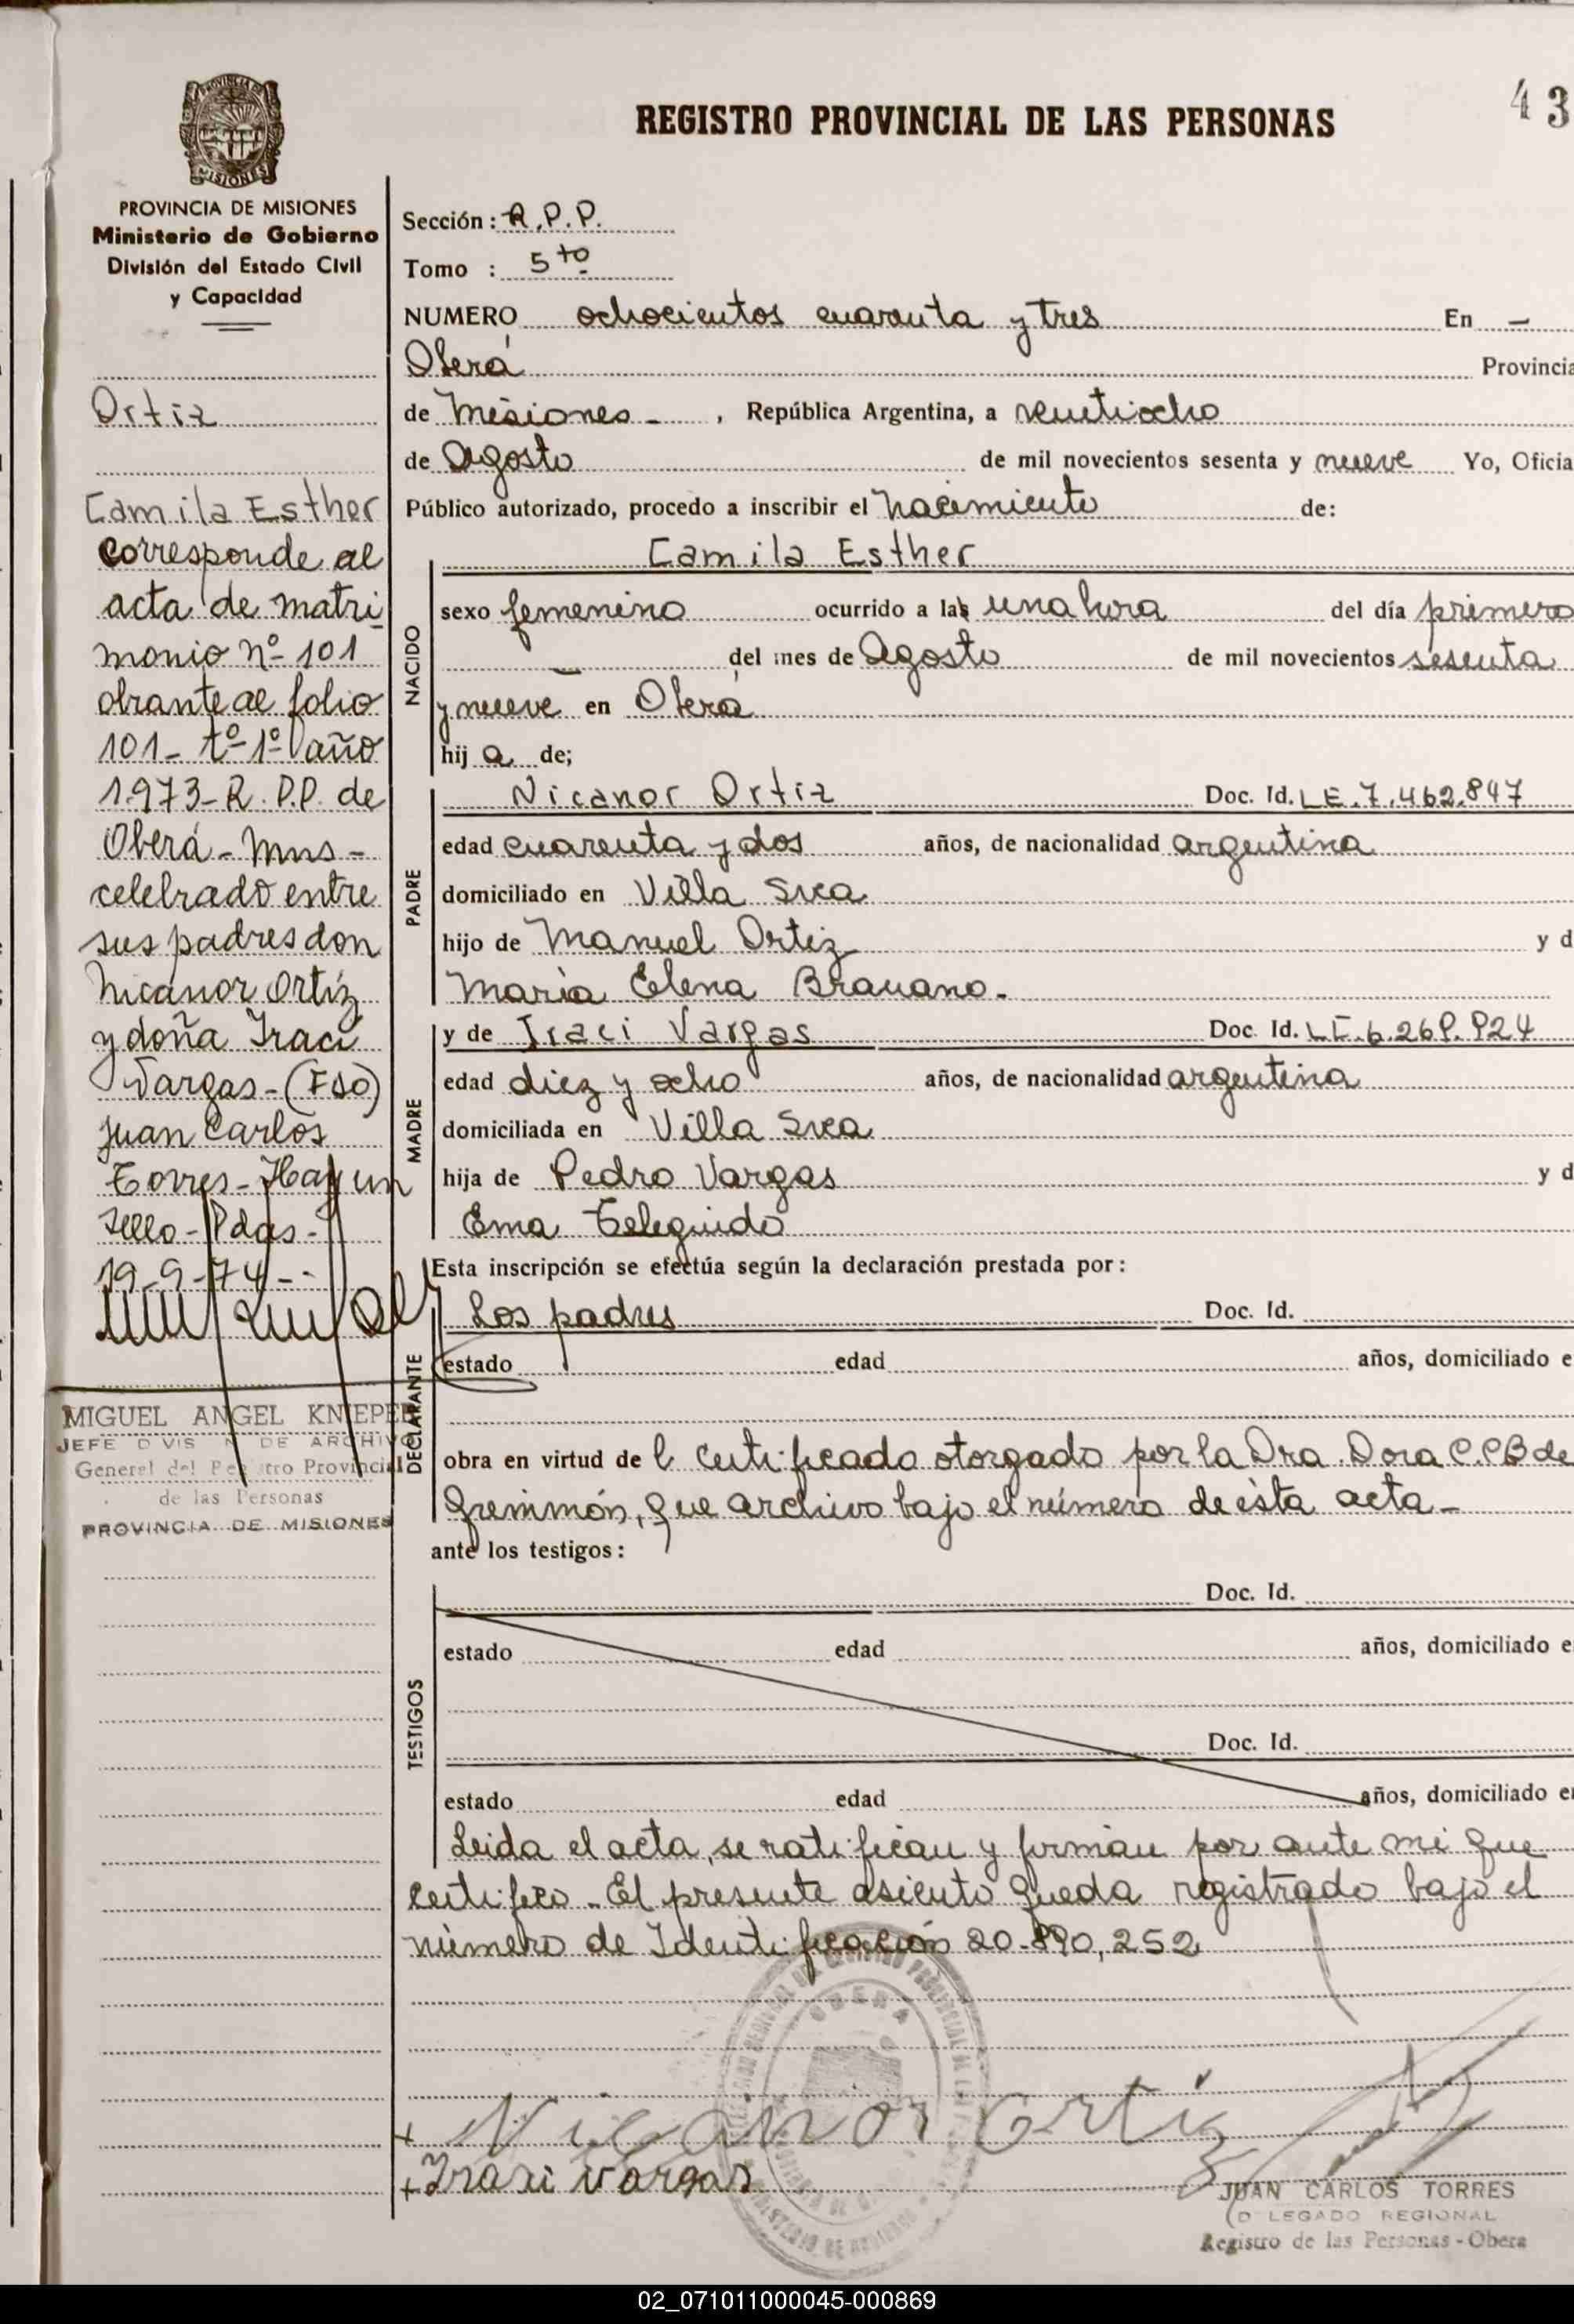 REGISTRO PROVINCIAL DE LAS PERSONAS
43
PROVINCIA DE MISIONES
Ministerio de Gobierno
División del Estado Civil
y Capacidad
Ortiz
Camila Esther
corresponde al
acta de matri
monio nº 101
obrante al folio
101- tº-1º año
1.973-R.P.P. de
Oberá-Mns-
celebrado entre
sus padres don
Nicanor Ortíz
y doña Iraci
Vargas-(Fdo)
Juan Carlos
Torres-Hay un
sello-Pdas-
19-9-74--
MIGUEL ANGEL KNIEPER
JEFE DIVISION DE ARCHIVO
General del Registro Provincial
de las Personas
PROVINCIA DE MISIONES
Sección: R.P.P.
Tomo : 5to
NUMERO ochocientos cuarenta y tres En -
Oberá Provincia
de Misiones - , República Argentina, a veintiocho
de Agosto de mil novecientos sesenta y nueve Yo, Oficia
Público autorizado, procedo a inscribir el Nacimiento de:
NACIDO
Camila Esther
sexo femenino ocurrido a las una hora del día primero
- del mes de Agosto de mil novecientos sesenta
y nueve en Oberá
hij a de;
PADRE
Nicanor Ortiz Doc. Id. LE.7.462.847
edad cuarenta y dos años, de nacionalidad argentina
domiciliado en Villa Svea
hijo de Manuel Ortiz y d
María Elena -
MADRE
y de Iraci Vargas Doc. Id. LE.
edad diez y ocho años, de nacionalidad argentina
domiciliada en Villa Svea
hija de Pedro Vargas y d
Ema
Esta inscripción se efectúa según la declaración prestada por:
DECLARANTE
Los padres Doc. Id.
estado edad años, domiciliado e
obra en virtud de l certificado otorgado por la Dra. Dora C.CB de
que archivo bajo el número de ésta acta-
ante los testigos:
TESTIGOS
Doc. Id.
estado edad años, domiciliado e
Doc. Id.
estado edad años, domiciliado e
Leida el acta, se ratifican y firman por ante mi que
certifico - El presente asiento queda registrado bajo el
número de Identificación 20.890,252
OBERA
+ Nicanor Ortiz
+ Iraci Vargas
JUAN CARLOS TORRES
DELEGADO REGIONAL
Registro de las Personas - Obera
02_071011000045-000869